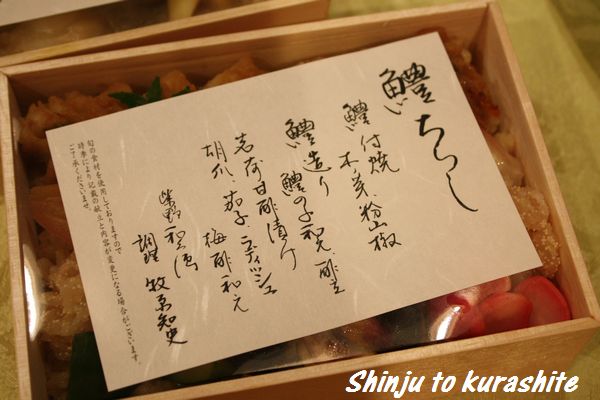 鱧ちらし
鱧付焼 木ノ芽 粉山椒
鱧造り 鱧の子和え 酢立
茗荷甘酢漬け
胡瓜、茄子、ラディッシュ
梅酢和え
紫野和久傳
調理 牧原知史
旬の食材を使用しておりますので
時季により記載の献立と内容が変更になる場合がございます。
ご了承くださいませ。
Shinju to kurashite